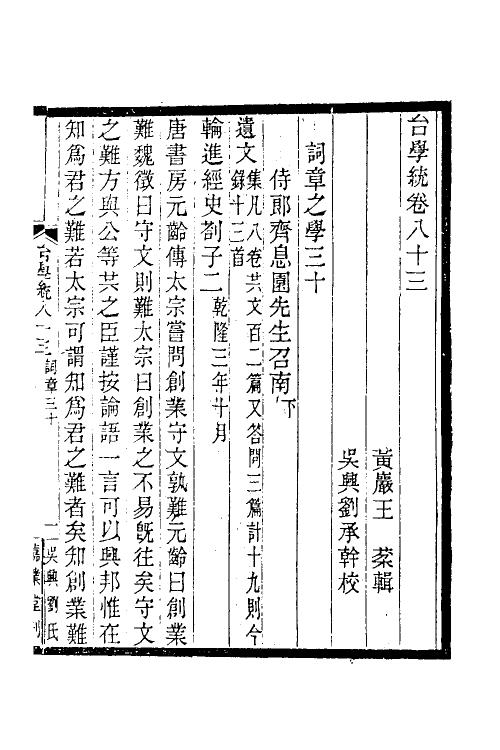 台學統卷八十三
黃巖王棻輯
吳興劉承幹校
詞章之學三十
侍郎齊息園先生召南下
遺文集凡八卷共文百二篇又答問三篇計十九則今
錄十三首
輪進經史劄子二乾隆三年十月
唐書房元齡傳太宗嘗問創業守文孰難元齡曰創業
難魏徵曰守文則難太宗曰創業之不易旣往矣守文
之難方與公等共之臣謹按論語一言可以興邦惟在
知爲君之難若太宗可謂知爲君之難者矣知創業難
台學統八十三 詞章三十
一 吳興劉氏
嘉業堂刊